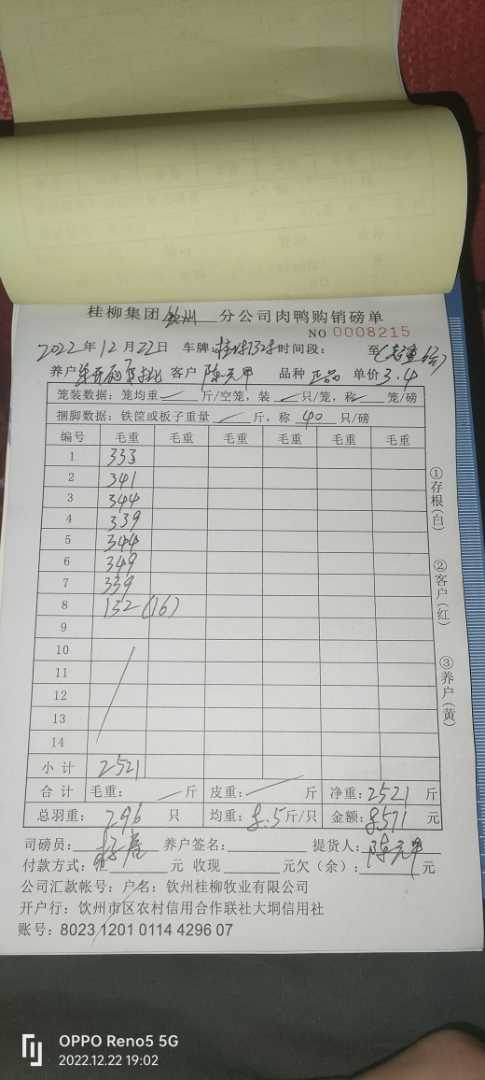 桂柳集团钦州分公司肉鸭购销磅单
NO 0008215
2022年12月22日 车牌 时间段: 至
养户 客户 陈元甲 品种 正品 单价 3.4
笼装数据: 笼均重 斤/空笼, 装 只/笼, 称 笼/磅
捆脚数据: 铁筐或板子重量 斤, 称 40 只/磅
编号 毛重 毛重 毛重 毛重 毛重 毛重
1 333
2 341
3 344
4 339
5 344
6 349
7 339
8 132(16)
9
10
11
12
13
14
小计 2521
合计 毛重: 斤 皮重: 斤 净重: 2521 斤
总羽重: 296 只 均重: 8.5斤/只 金额: 8571 元
司磅员: 养户签名: 提货人: 陈元甲
付款方式: 元 收现 元欠(余): 元
公司汇款帐号: 户名: 钦州桂柳牧业有限公司
开户行: 钦州市区农村信用合作联社大垌信用社
账号: 8023 1201 0114 4296 07
①存根(白)
②客户(红)
③养户(黄)
OPPO Reno5 5G
2022.12.22 19:02